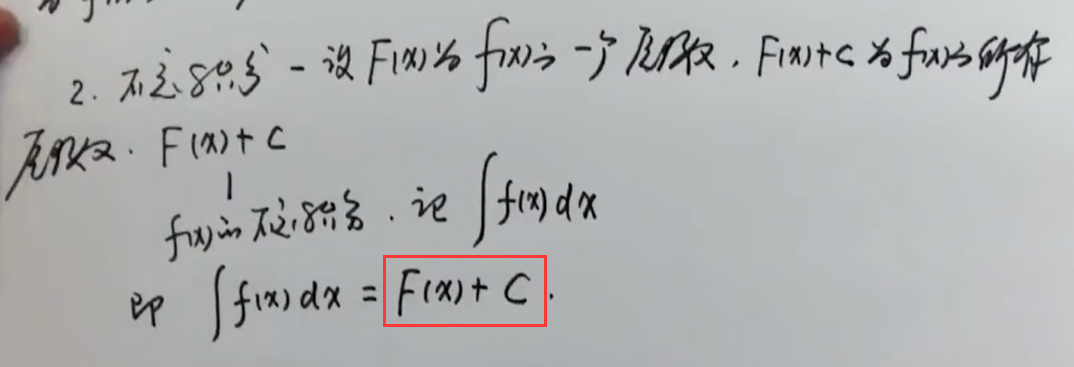 2. 不定积分 - 设 F(x)为 f(x)的一个原函数. F(x)+C 为f(x)的所有
原函数. F(x)+C
f(x)的不定积分. 记 ∫f(x)dx
即 ∫f(x)dx = F(x)+C.